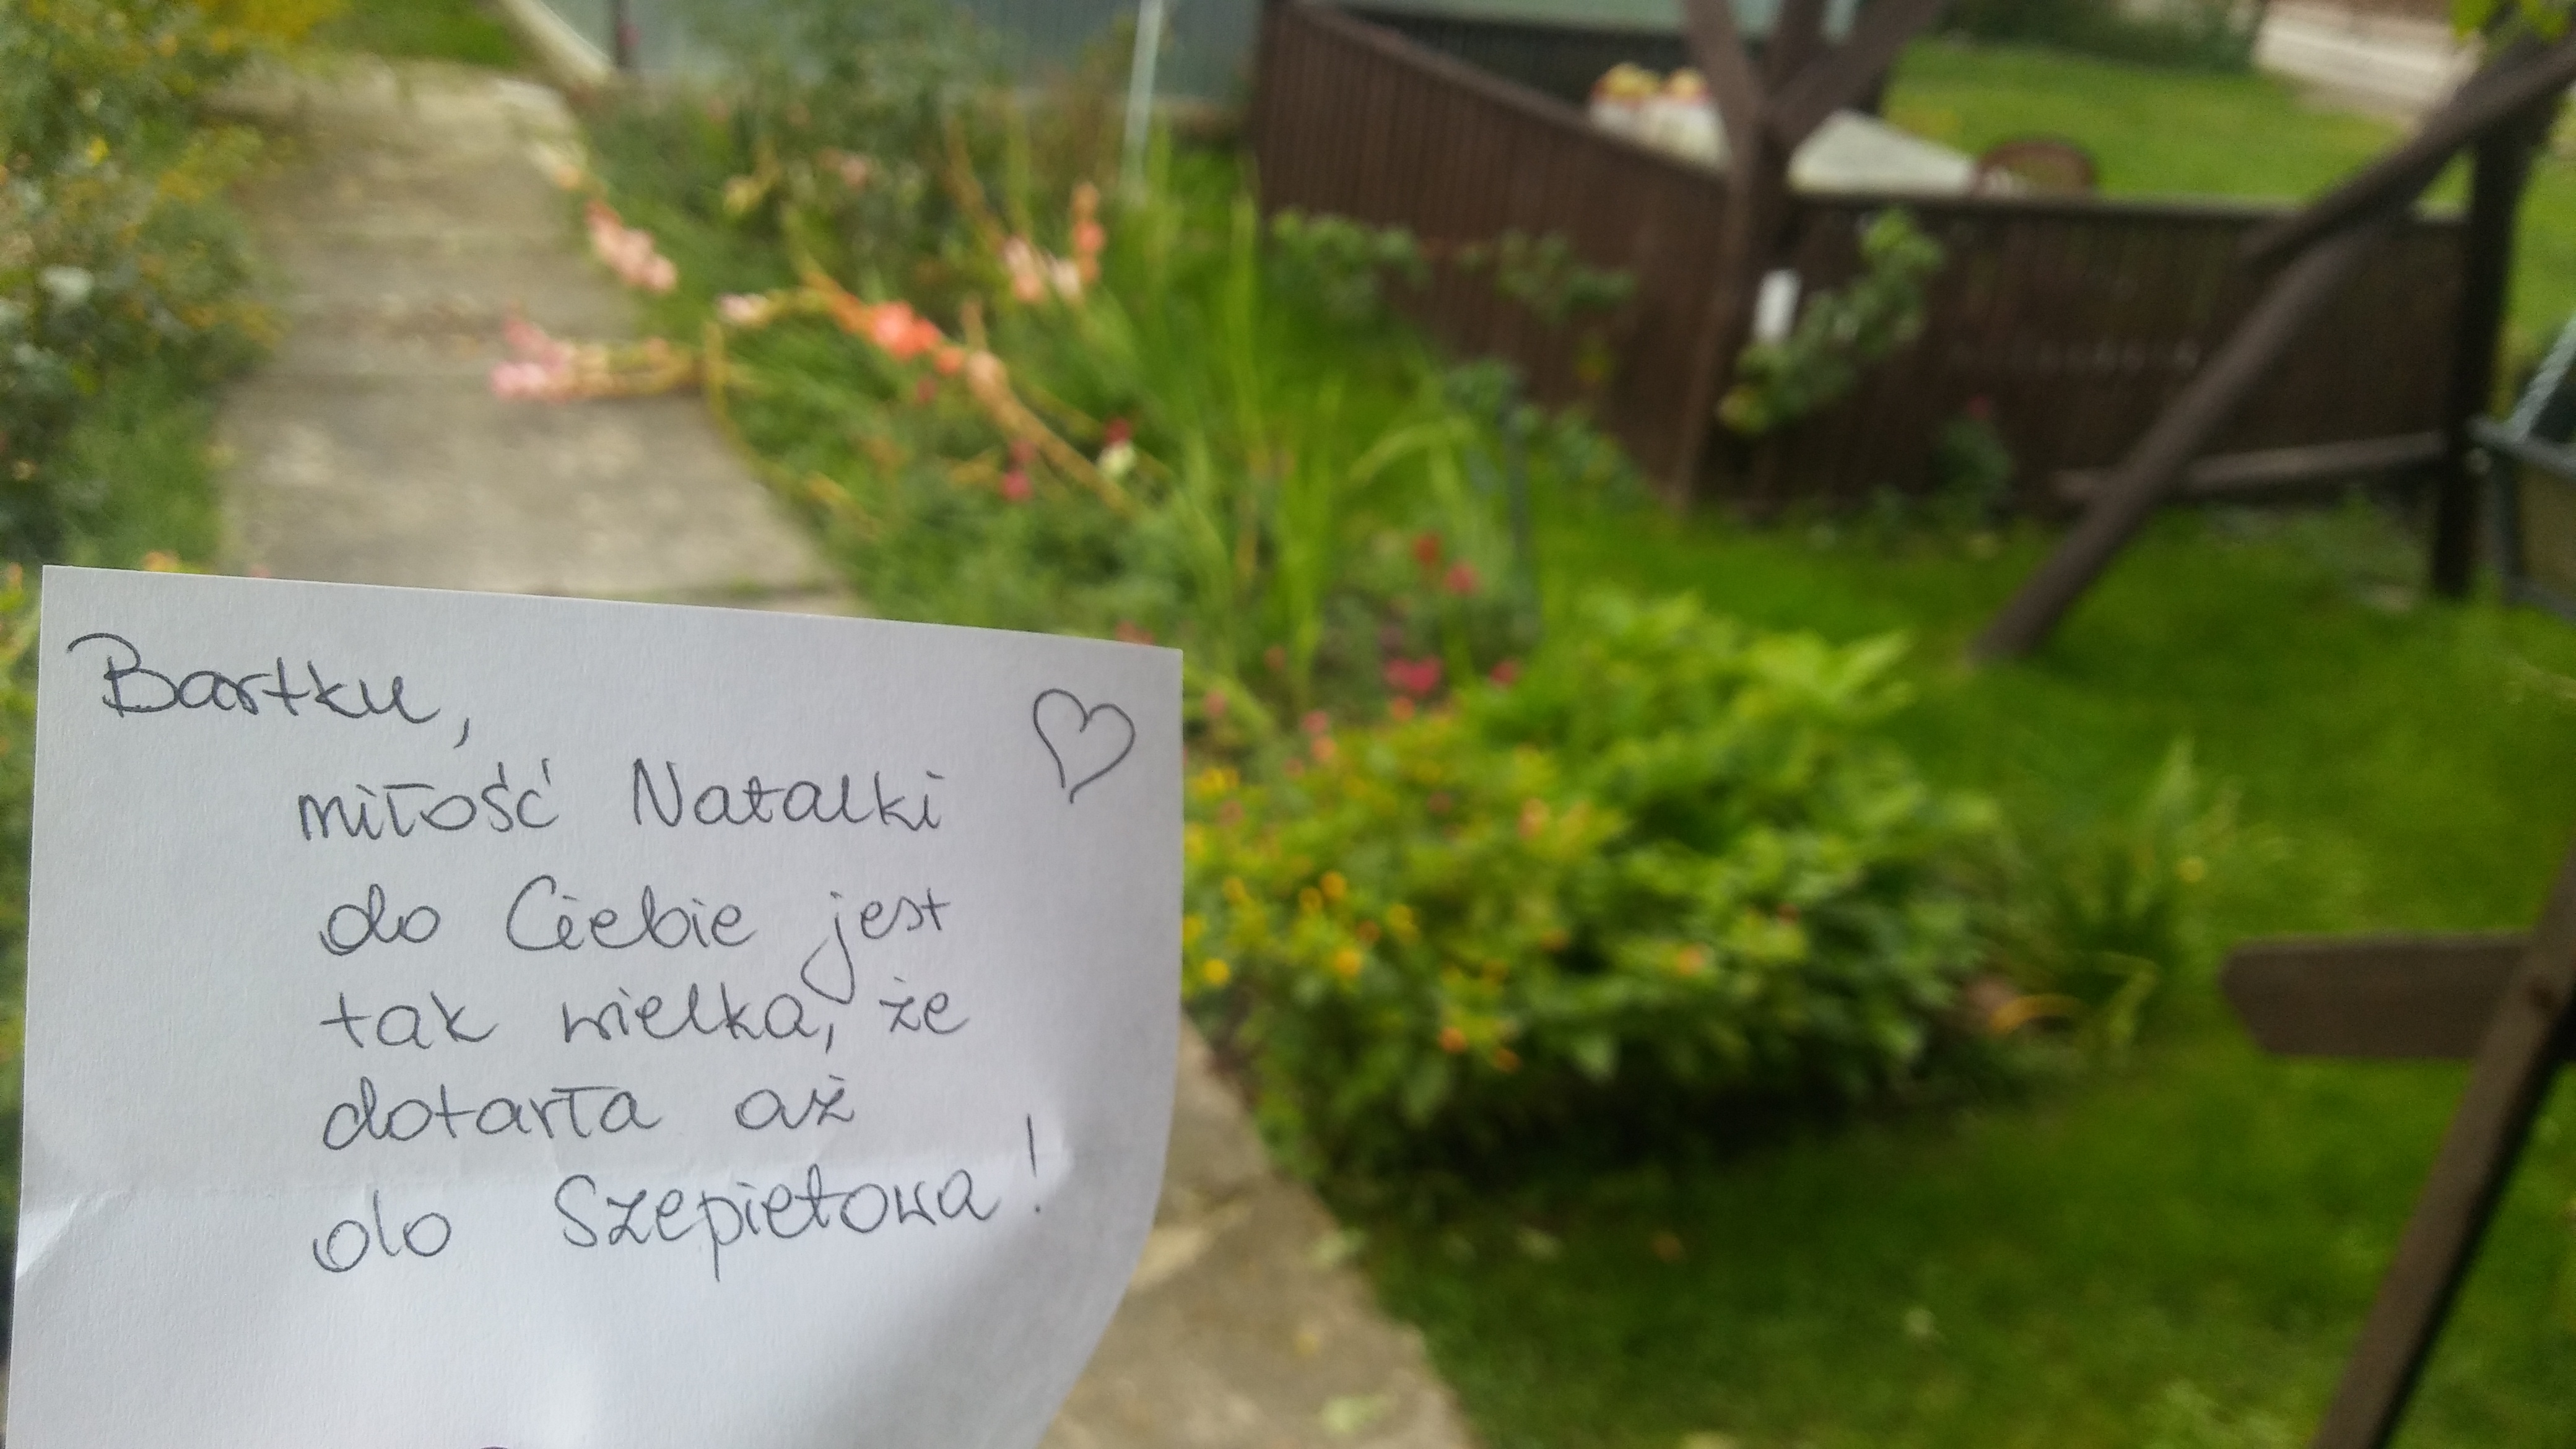 Bartku,
miłość Natalki
do Ciebie jest
tak wielka, że
dotarła aż
do Szepietowa!